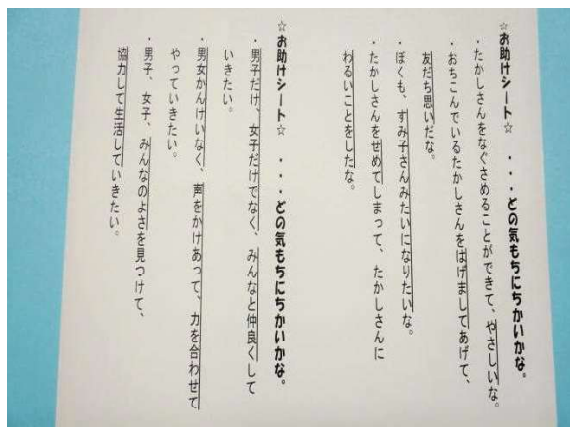 ☆お助けシート☆ ・・・どの気もちにちかいかな。
・たかしさんをなぐさめることができて、やさしいな。
・おちこんでいるたかしさんをはげましてあげて、
友だち思いだな。
・ぼくも、すみ子さんみたいになりたいな。
・たかしさんをせめてしまって、たかしさんに
わるいことをしたな。
☆お助けシート☆ ・・・どの気もちにちかいかな。
・男子だけ、女子だけでなく、みんなと仲良くして
いきたい。
・男女かんけいなく、声をかけあって、力を合わせて
やっていきたい。
・男子、女子、みんなのよさを見つけて、
協力して生活していきたい。